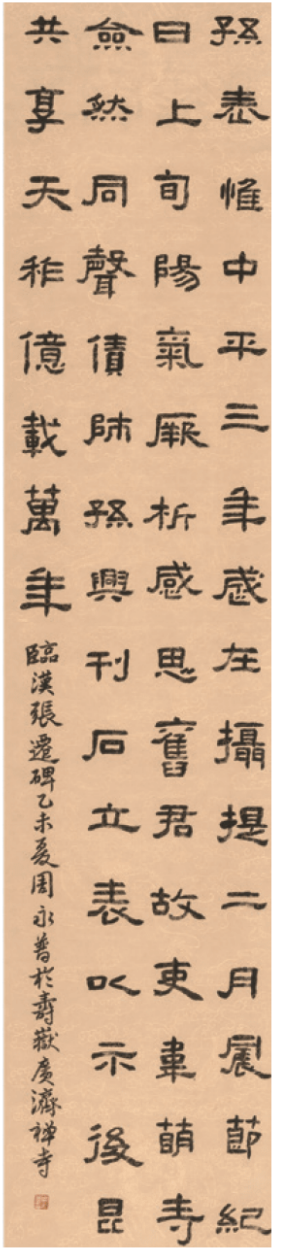 孫表惟中平三年歲在攝提二月震節紀
日上旬陽氣厥析感思舊君故吏韋萌等
僉然同聲債師孫興刊石立表以示後昆
共享天祚億載萬年
臨漢張遷碑乙未夏周永普於壽嶽廣濟禪寺